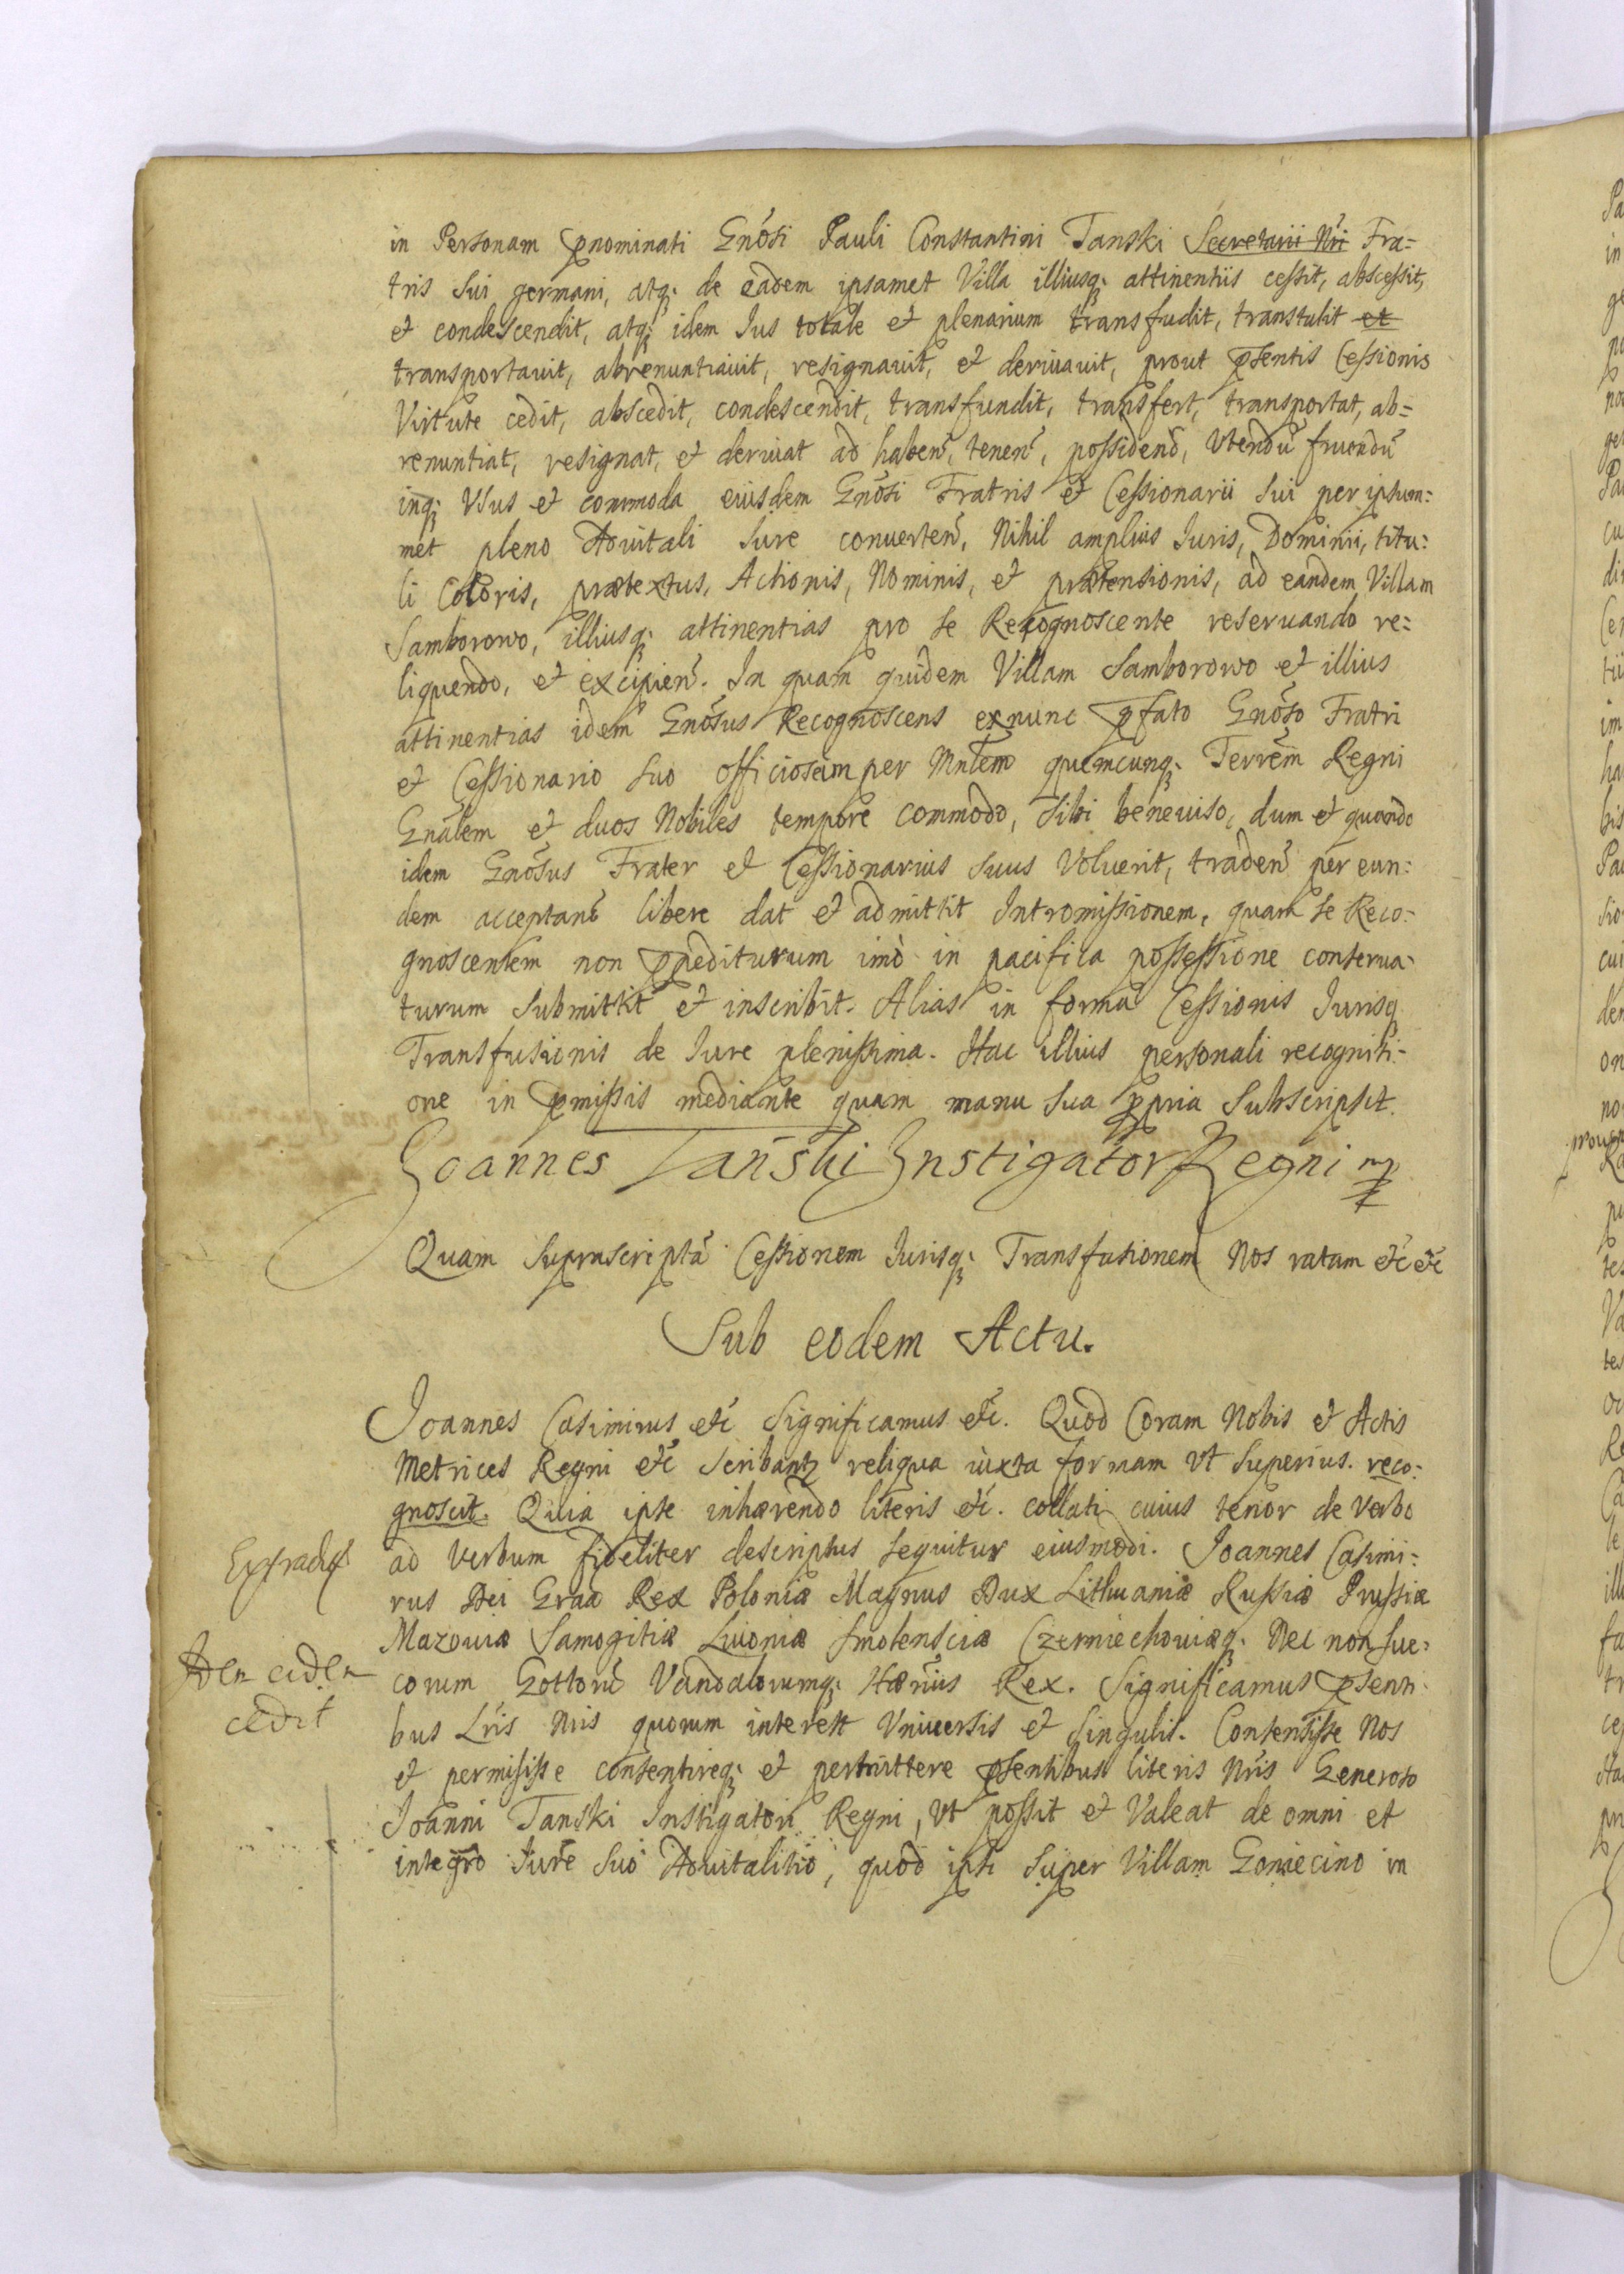 in Personam pnominati Gnõsi Pauli Constantini Tanski Secretarii Nri Fra=
tris Sui germani, atq; de eadem ipsamet Villa illiusq; attinentiis cessit, abscessit,
et condescendit, atq; idem Ius totale et plenarium transfudit, transtulit et
transportavit, abrenuntiauit, resignauit, et deriuauit, prout psentis Cessionis
Virtute cedit, abscedit, condescendit, transfundit, transfert, transportat, ab=
renuntiat, resignat, et deriuat ad haben̄, tenen̄, possidend̄, Vtendū fruendū
inq; Vsus et commoda eiusdem Gnõsi Fratris et Cessionarii Sui per ipsum=
met pleno Aduitali Iure conuerten̄, Nihil amplius Iuris, Dominii, titu=
li Coloris, prætextus, Actionis, Nominis, et prætensionis, ad eandem Villam
Samborowo, illiusq; attinentias pro se Recognoscente reseruando re=
liquendo, et excipien̄. In quam quidem Villam Samborowo et illius
attinentias idem Gnõsus Recognoscens exnunc pfato Gnõso Fratri
et Cessionario suo officiosam per Mnlem quemcunq; Terrem Regni
Gnalem et duos Nobiles tempore commodo, sibi beneuiso, dum et quando
idem Gnõsus Frater et Cessionarius suus Voluerit, traden̄ per eun=
dem acceptan̄ libere dat et admittit Intromissionem, quam se Reco=
gnoscentem non ppediturum imò in pacifica possessione conserua=
turum submittit et inscribit. Alias in forma Cessionis Iurisq;
Transfusionis de Iure plenissima. Hac illius personali recogniti=
one in pmissis mediante quam manu sua ppria subscripsit.
Joannes Tański Instigator Regni mp
Quam suprascriptā Cessionem Iurisq; Transfusionem Nos ratam etc etc
Sub eodem Actu.
Joannes Casimirus etc Significamus etc. Quod Coram Nobis et Actis
Metrices Regni etc scribantur reliqua iuxta formam Vt Superius. reco=
gnoscit. Quia ipse inhærendo literis etc. collati cuius tenor de verbo
Extradit̄
ad Verbum fideliter descriptus sequitur eiusmodi. Joannes Casimi=
rus Dei Graā Rex Poloniæ Magnus Dux Lithuaniæ Russiæ Prussiæ
Mazouiæ Samogitiæ Liuoniæ Smolensciæ Czerniechouiæq; Nec non Sue=
Idem eidem
corum Gottorū Vandalorumq; Hærius Rex. Significamus psenti=
cedit
bus Lris Nris quorum interest Vniuersis et singulis. Consensisse Nos
et permisisse consentireq; et permittere psentibus literis Nris Generoso
Joanni Tanski Instigatori Regni, Vt possit et Valeat de omni et
integro Iure suo Aduitalitio, quod ipsi super Villam Goniecino in